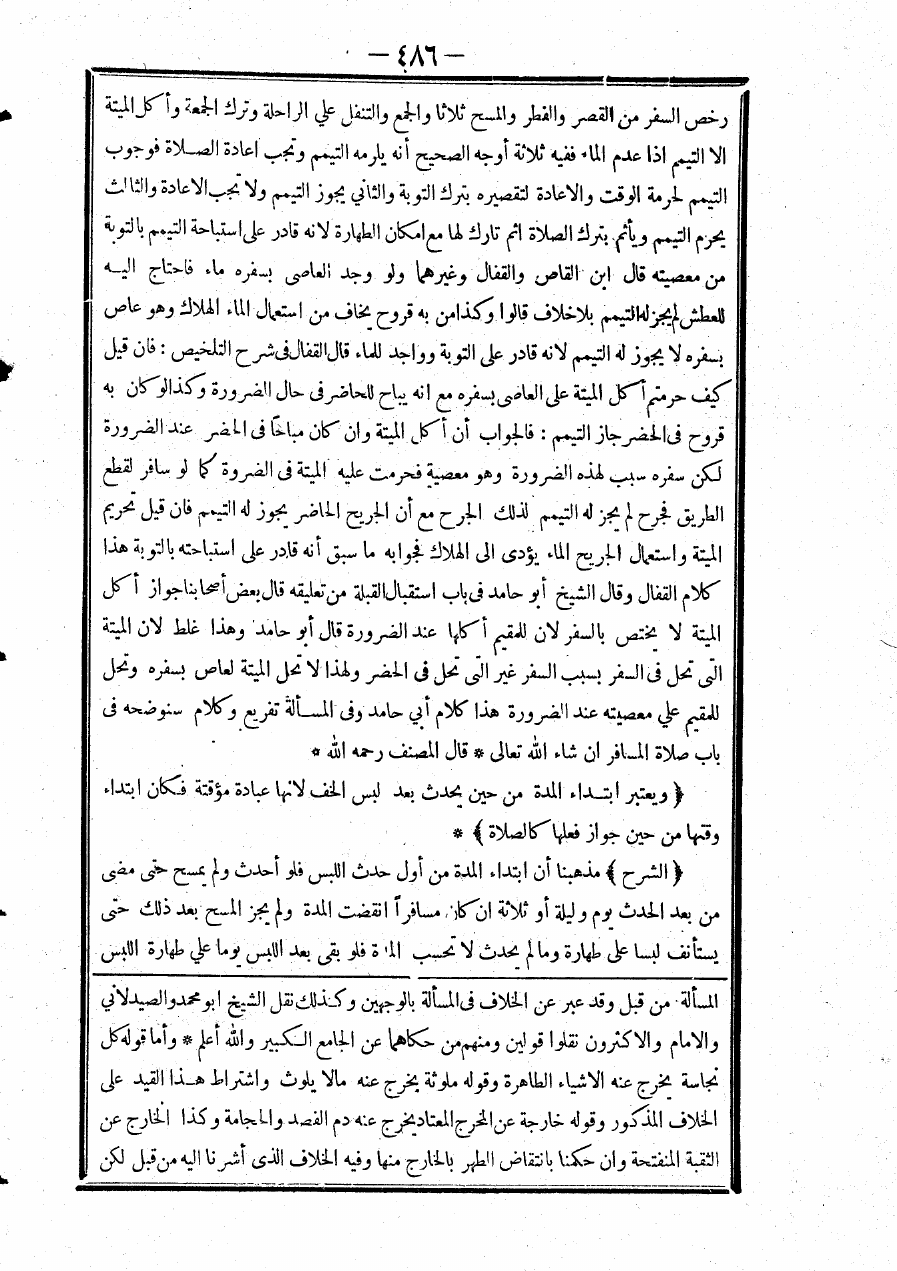 — ٤٨٦ —
رخص السفر من القصر والفطر والمسح ثلاثا والجمع والتنفل علي الراحلة وترك الجمعة وأكل الميتة
الا التيمم اذا عدم الماء ففيه ثلاثة أوجه الصحيح أنه يلزمه التيمم وتجب اعادة الصلاة فوجوب
التيمم لحرمة الوقت والاعادة لتقصيره بترك التوبة والثاني يجوز التيمم ولا تجب الاعادة والثالث
يحرم التيمم ويأثم بترك الصلاة اثم تارك لها مع امكان الطهارة لانه قادر على استباحة التيمم بالتوبة
من معصيته قال ابن القاص والقفال وغيرهما ولو وجد العاصى بسفره ماء فاحتاج اليه
للعطش لم يجز له التيمم بلاخلاف قالوا وكذا من به قروح يخاف من استعمال الماء الهلاك وهو عاص
بسفره لا يجوز له التيمم لانه قادر على التوبة وواجد للماء قال القفال فى شرح التلخيص : فان قيل
كيف حرمتم أكل الميتة على العاصى بسفره مع انه يباح للحاضر فى حال الضرورة وكذا لو كان به
قروح فى الحضر جاز التيمم : فالجواب أن أكل الميتة وان كان مباحًا فى الحضر عند الضرورة
لكن سفره سبب لهذه الضرورة وهو معصية فحرمت عليه الميتة فى الضروة كما لو سافر لقطع
الطريق فجرح لم يجز له التيمم لذلك الجرح مع أن الجريح الحاضر يجوز له التيمم فان قيل تحريم
الميتة واستعمال الجريح الماء يؤدى الى الهلاك فجوابه ما سبق أنه قادر على استباحته بالتوبة هذا
كلام القفال وقال الشيخ أبو حامد فى باب استقبال القبلة من تعليقه قال بعض أصحابنا جواز أكل
الميتة لا يختص بالسفر لان للمقيم أكلها عند الضرورة قال أبو حامد وهذا غلط لان الميتة
التى تحل فى السفر بسبب السفر غير التى تحل فى الحضر ولهذا لا تحل الميتة لعاص بسفره وتحل
للمقيم علي معصيته عند الضرورة هذا كلام أبي حامد وفى المسألة تفريع وكلام سنوضحه فى
باب صلاة المسافر ان شاء الله تعالى * قال المصنف رحمه الله *
﴿ ويعتبر ابتداء المدة من حين يحدث بعد لبس الخف لانها عبادة مؤقتة فكان ابتداء
وقتها من حين جواز فعلها كالصلاة ﴾ *
﴿ الشرح ﴾ مذهبنا أن ابتداء المدة من أول حدث اللبس فلو أحدث ولم يمسح حتى مضى
من بعد الحدث يوم وليلة أو ثلاثة ان كان مسافرًا انقضت المدة ولم يجز المسح بعد ذلك حتى
يستأنف لبسا على طهارة وما لم يحدث لا تحسب المدة فلو بقى بعد اللبس يوما علي طهارة اللبس
المسألة من قبل وقد عبر عن الخلاف فى المسألة بالوجهين وكذلك نقل الشيخ ابو محمد والصيدلاني
والامام والاكثرون نقلوا قولين ومنهم من حكاهما عن الجامع الكبير والله أعلم * وأما قوله كل
نجاسة يخرج عنه الاشياء الطاهرة وقوله ملوثة يخرج عنه مالا يلوث واشتراط هذا القيد على
الخلاف المذكور وقوله خارجة عن المخرج المعتاد يخرج عنه دم الفصد والحجامة وكذا الخارج عن
الثقبة المنفتحة وان حكمنا بانتقاض الطهر بالخارج منها وفيه الخلاف الذى أشرنا اليه من قبل لكن